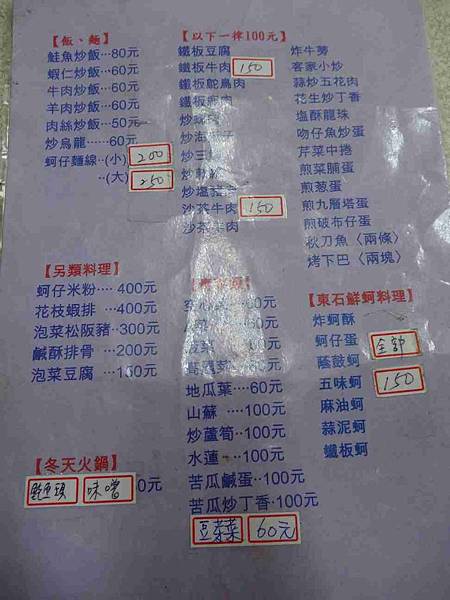 【飯、麵】
鮭魚炒飯…80元
蝦仁炒飯…60元
牛肉炒飯…60元
羊肉炒飯…60元
肉絲炒飯…50元
炒烏龍……60元
蚵仔麵線‥(小) 200
‥(大) 250
【以下一律100元】
鐵板豆腐
鐵板牛肉 150
鐵板鴕鳥肉
鐵板
炒
炒海
炒三
炒
炒塩
沙茶牛肉 150
沙茶
炸牛蒡
客家小炒
蒜炒五花肉
花生炒丁香
塩酥龍珠
吻仔魚炒蛋
芹菜中捲
煎菜脯蛋
煎葱蛋
煎九層塔蛋
煎破布仔蛋
秋刀魚〈兩條〉
烤下巴〈兩塊〉
【另類料理】
蚵仔米粉‥‥400元
花枝蝦排 …400元
泡菜松阪豬…300元
鹹酥排骨 …200元
泡菜豆腐 …150元
60元
元
元
元
地瓜葉‥‥60元
山蘇 ‥‥100元
炒蘆筍‥100元
水蓮 ‥‥100元
苦瓜鹹蛋‥100元
苦瓜炒丁香‥100元
豆菜 60元
【東石鮮蚵料理】
炸蚵酥
蚵仔蛋 全部
蔭鼓蚵
五味蚵 150
麻油蚵
蒜泥蚵
鐵板蚵
【冬天火鍋】
鰱魚頭 味噌 0元